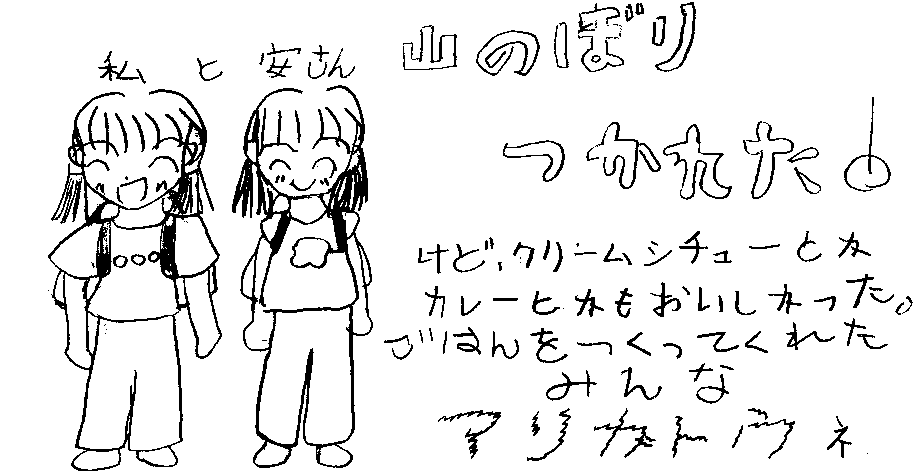 私と安さん
山のぼり
つかれた!
けど、クリームシチューとか
カレーとかもおいしかった。
ごはんをつくってくれた
みんな
アリガトウネ